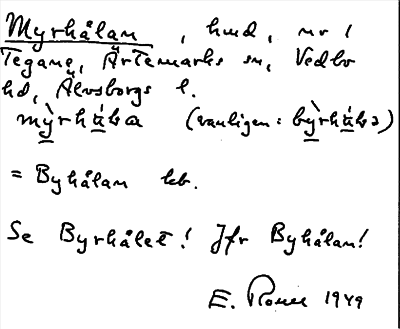 Myrhålan, hmd, nr 1
Tegane, Ärtemarks sn, Vedbo
hd, Älvsborgs l.
mỳrhåla (vanligen: bỳrhåla)
= Byhålan kb.
Se Byrhålet! Jfr Byhålan!
E. 1949